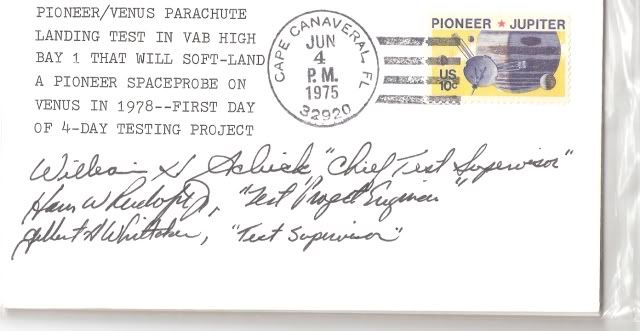 PIONEER/VENUS PARACHUTE
LANDING TEST IN VAB HIGH
BAY 1 THAT WILL SOFT-LAND
A PIONEER SPACEPROBE ON
VENUS IN 1978--FIRST DAY
OF 4-DAY TESTING PROJECT
CAPE CANAVERAL, FL
JUN
4
P.M.
1975
32920
PIONEER ★ JUPITER
US
10c
William H. Schick "Chief Test Supervisor"
Hans W "Test Project Engineer"
Albert A Whittaker, "Test Supervisor"